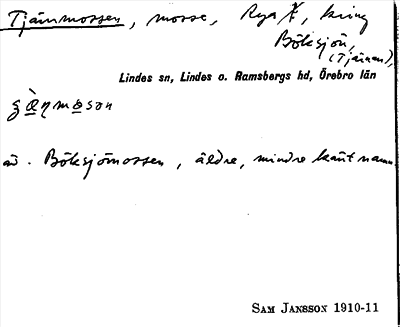 Tjärnmossen, mosse, Rya f, kring
Böksjön,
(Tjärnen),
Lindes sn, Lindes o. Ramsbergs hd, Örebro län
av. Böksjömossen, äldre, mindre känt namn
SAM JANSSON 1910-11